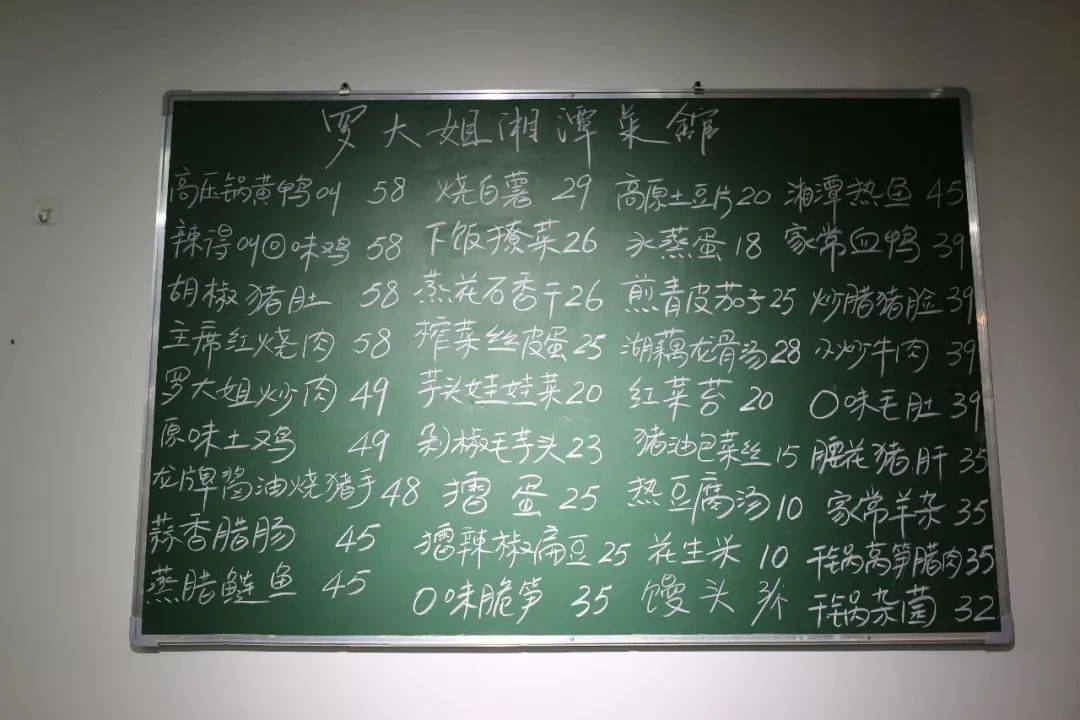 罗大姐湘潭菜館
高压锅黄鸭叫 58
辣得叫口味鸡 58
胡椒猪肚 58
主席红烧肉 58
罗大姐炒肉 49
原味土鸡 49
龙牌酱油烧猪手 48
蒜香腊肠 45
蒸腊鲢鱼 45
烧白薯 29
下饭擦菜 26
蒸花石香干 26
榨菜丝皮蛋 25
芋头娃娃菜 20
剁椒毛芋头 23
擂蛋 25
擂辣椒扁豆 25
口味脆笋 35
高原土豆片 20
水蒸蛋 18
煎青皮茄子 25
湖藕龙骨汤 28
红菜苔 20
猪油包菜丝 15
热豆腐汤 10
花生米 10
馒头 3/个
湘潭热鱼 45
家常血鸭 39
炒腊猪脸 39
小炒牛肉 39
口味毛肚 39
腰花猪肝 35
家常羊杂 35
干锅莴笋腊肉 35
干锅杂菌 32